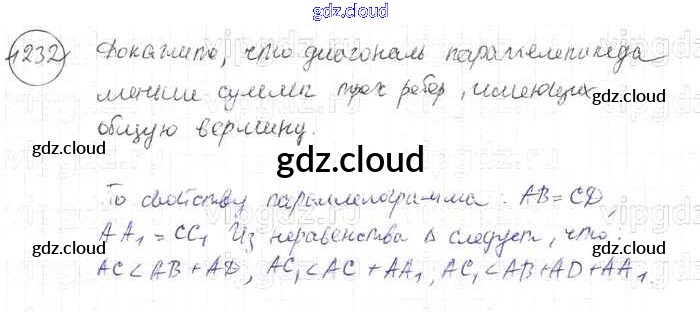 gdz.cloud
1232 Докажите, что диагональ параллелепипеда
меньше суммы трех ребер, имеющих
gdz.cloud
общую вершину.
gdz.cloud
gdz.cloud
gdz.cloud
По свойству параллелограмма: AB = CD,
AA₁ = CC₁ Из неравенства Δ следует, что:
gdz.cloud
gdz.cloud
AC < AB + AD, AC₁ < AC + AA₁, AC₁ < AB + AD + AA₁.
gdz.cloud